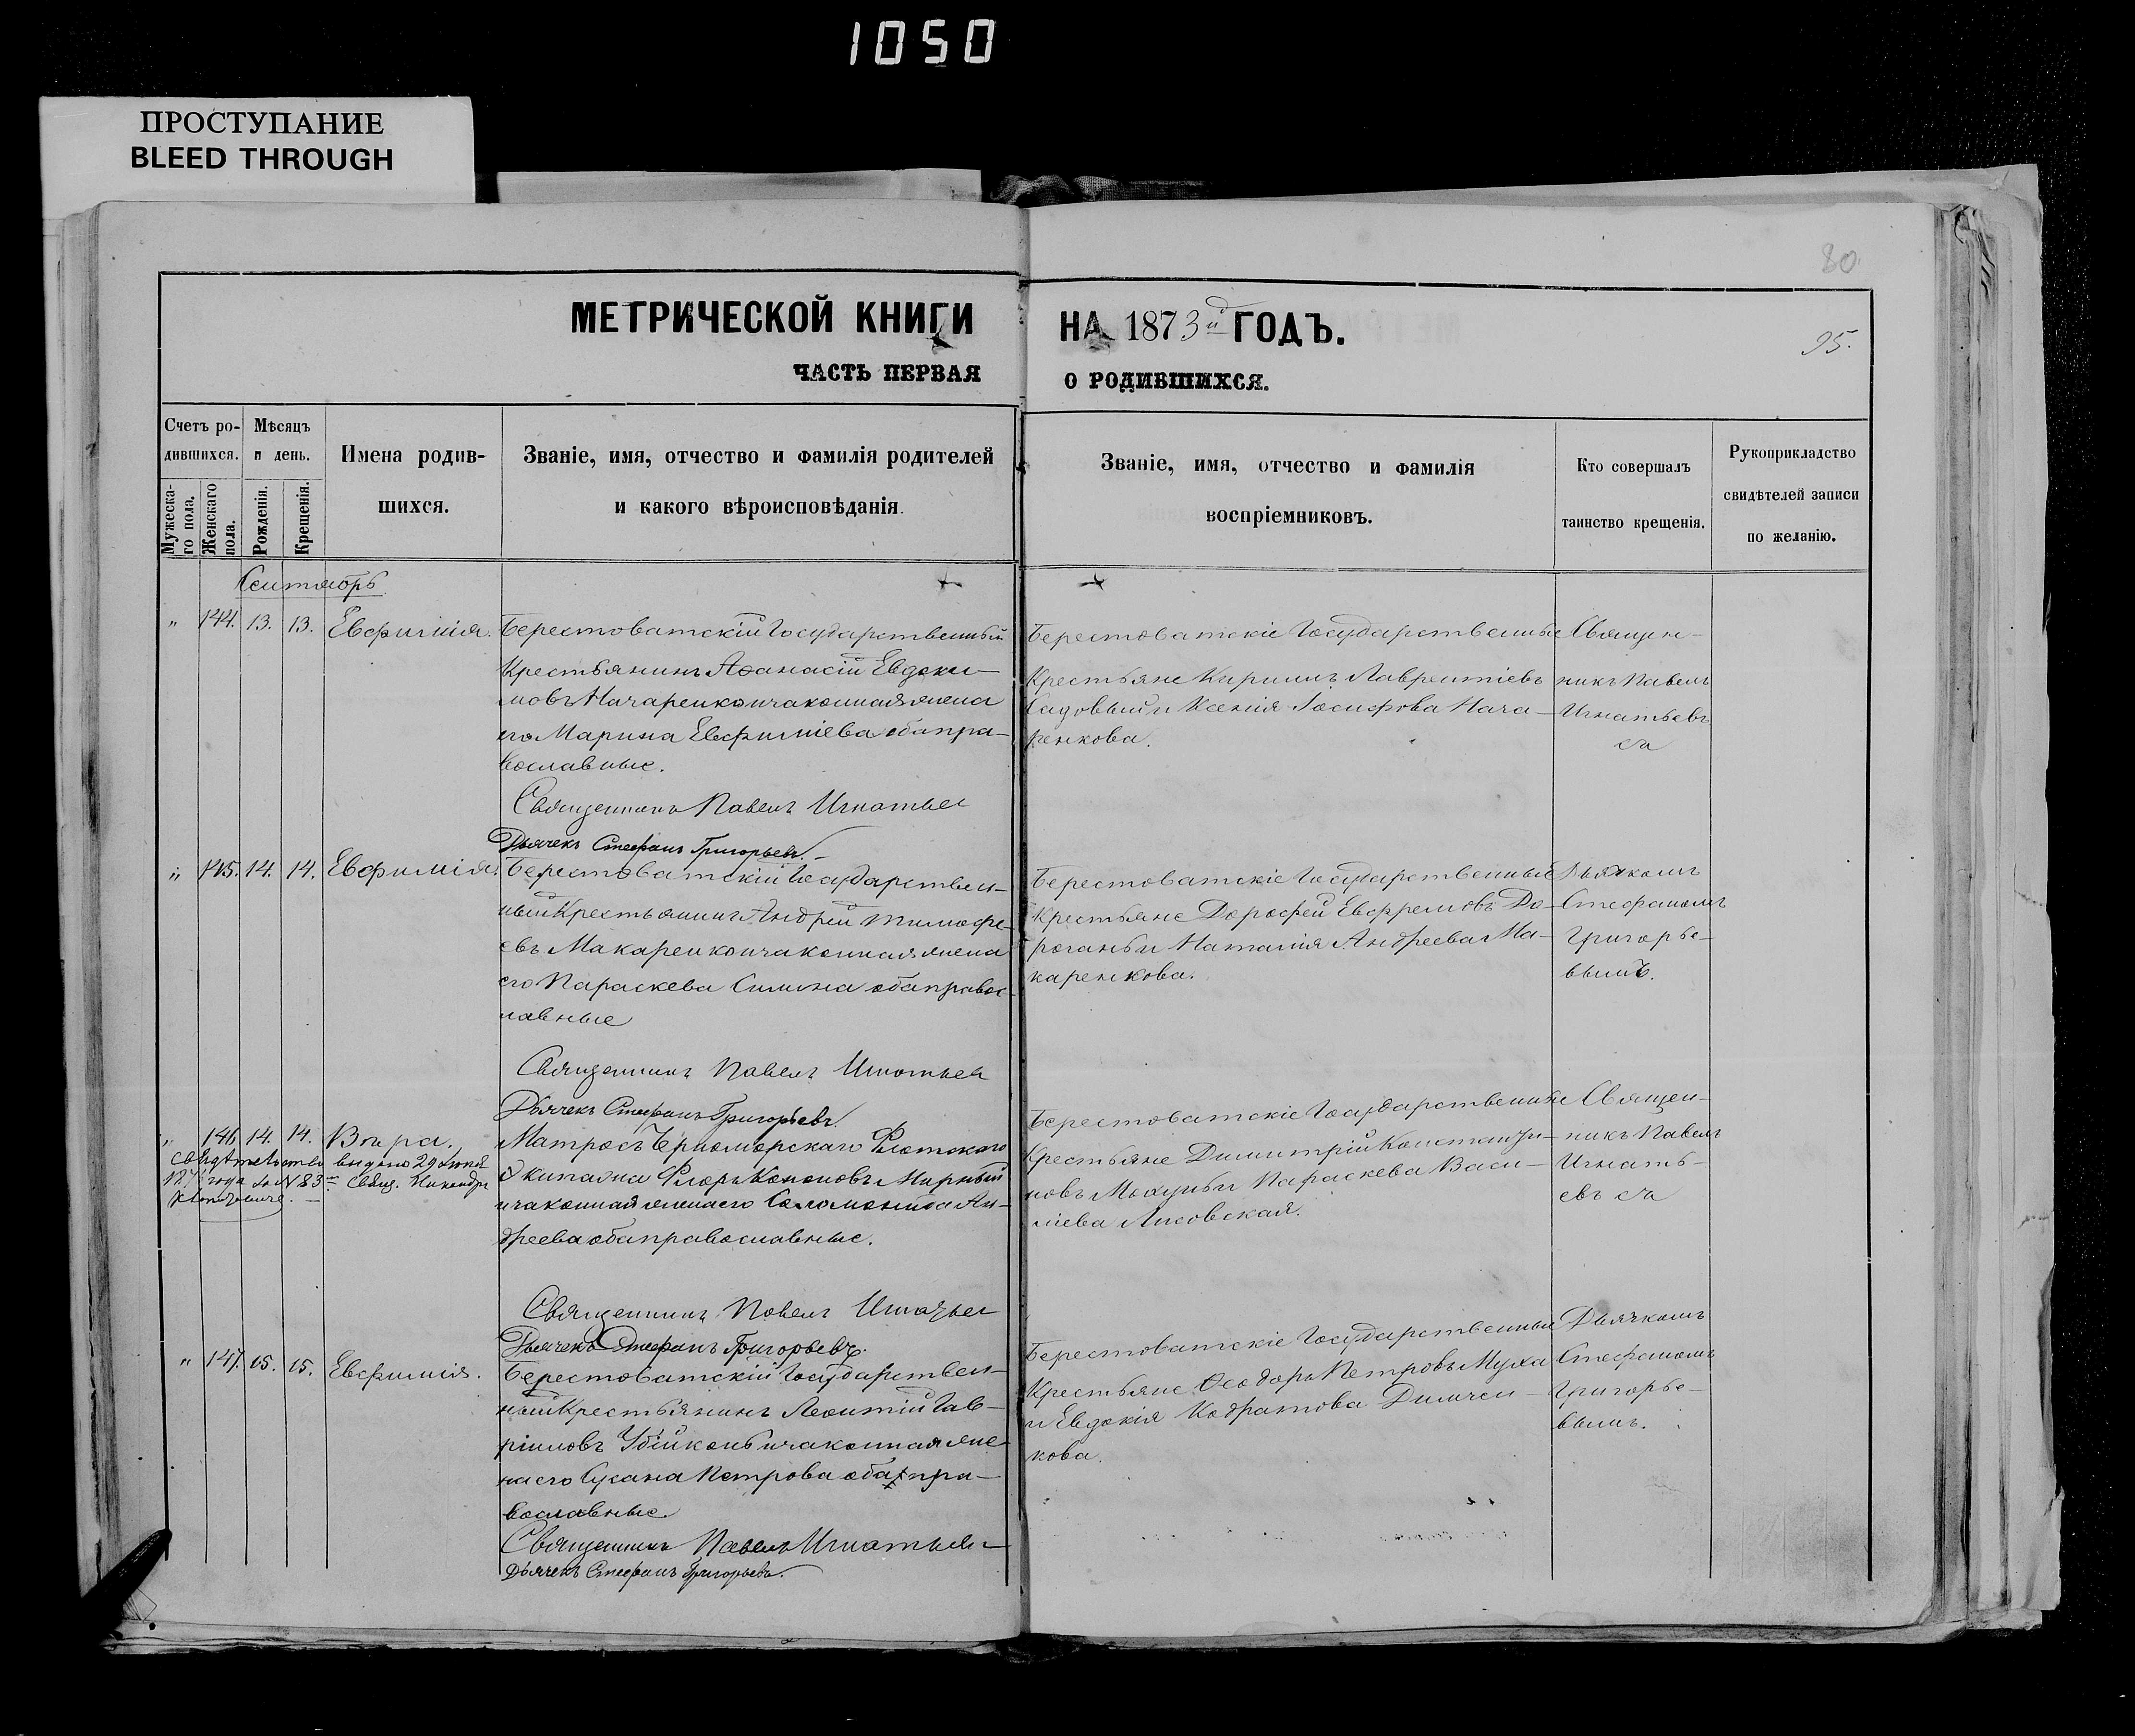 1050
ПРОСТУПАНИЕ
BLEED THROUGH
80
МЕТРИЧЕСКОЙ КНИГИ
НА 1873й ГОДЪ.
95.
ЧАСТЬ ПЕРВАЯ
О РОДИВШИХСЯ.
Счетъ ро-
дившихся.
Мужеска-
го пола.
Женскаго
пола.
Мѣсяцъ
и день.
Рожденія.
Крещенія.
Имена родив-
шихся.
Званіе, имя, отчество и фамилія родителей
и какого вѣроисповѣданія.
Званіе, имя, отчество и фамилія
воспріемниковъ.
Кто совершалъ
таинство крещенія.
Рукоприкладство
свидѣтелей записи
по желанію.
Сентябрь
" 144. 13. 13. Евфимія.
Берестоватскій Государственный
Крестьянинъ Аѳанасій Евдоки-
мовъ Начаренко и законная жена
его Марина Евфиміева оба пра-
вославные.
Священникъ Павелъ Игнатьев
Дьячекъ Стефанъ Григорьевъ.
Берестоватскіе Государственные
Крестьяне Кирилъ Лаврентіевъ
Садовый и Ксенія Іосифова Нача-
ренкова.
Священ-
никъ Павелъ
Игнатьевъ
са
" 145. 14. 14. Евфимія.
Берестоватскій Государствен-
ный Крестьянинъ Андрей Тимофе-
евъ Макаренко и законная жена
его Параскева Симина оба правос-
лавные
Священникъ Павелъ Игнатьев
Дьячекъ Стефанъ Григорьевъ.
Берестоватскіе Государственные
Крестьяне Дорофей Евфремовъ До-
роганъ и Наталія Андреева Ма-
каренкова.
Дьячкомъ
Стефаномъ
Григорье-
вымъ.
" 146 14. 14. Вѣра.
Свидѣтельство выдано 29 Июня
года за № 83 Свящ. Никандр
Матросъ Черноморскаго Флотскаго
Экипажа Флоръ Кононовъ Мирный
и законная жена его Соломонида Ан-
дреева оба православные.
Священникъ Павелъ Игнатьев
Дьячекъ Стефанъ Григорьевъ.
Берестоватскіе Государственные
Крестьяне Димитрій Константи-
новъ и Параскева Васи-
ліева Лисовская.
Священ-
никъ Павелъ
Игнать-
евъ са
" 147. 15. 15. Евфимія.
Берестоватскій Государствен-
ный Крестьянинъ Леонтій Гав-
ріиловъ Убійконь и законная же-
на его Сусана Петрова оба пра-
вославные.
Священникъ Павелъ Игнатьев
Дьячекъ Стефанъ Григорьевъ.
Берестоватскіе Государственные
Крестьяне Ѳеодоръ Петровъ Муха
и Евдокія Кодратова Димчен-
кова.
Дьячкомъ
Стефаномъ
Григорье-
вымъ.